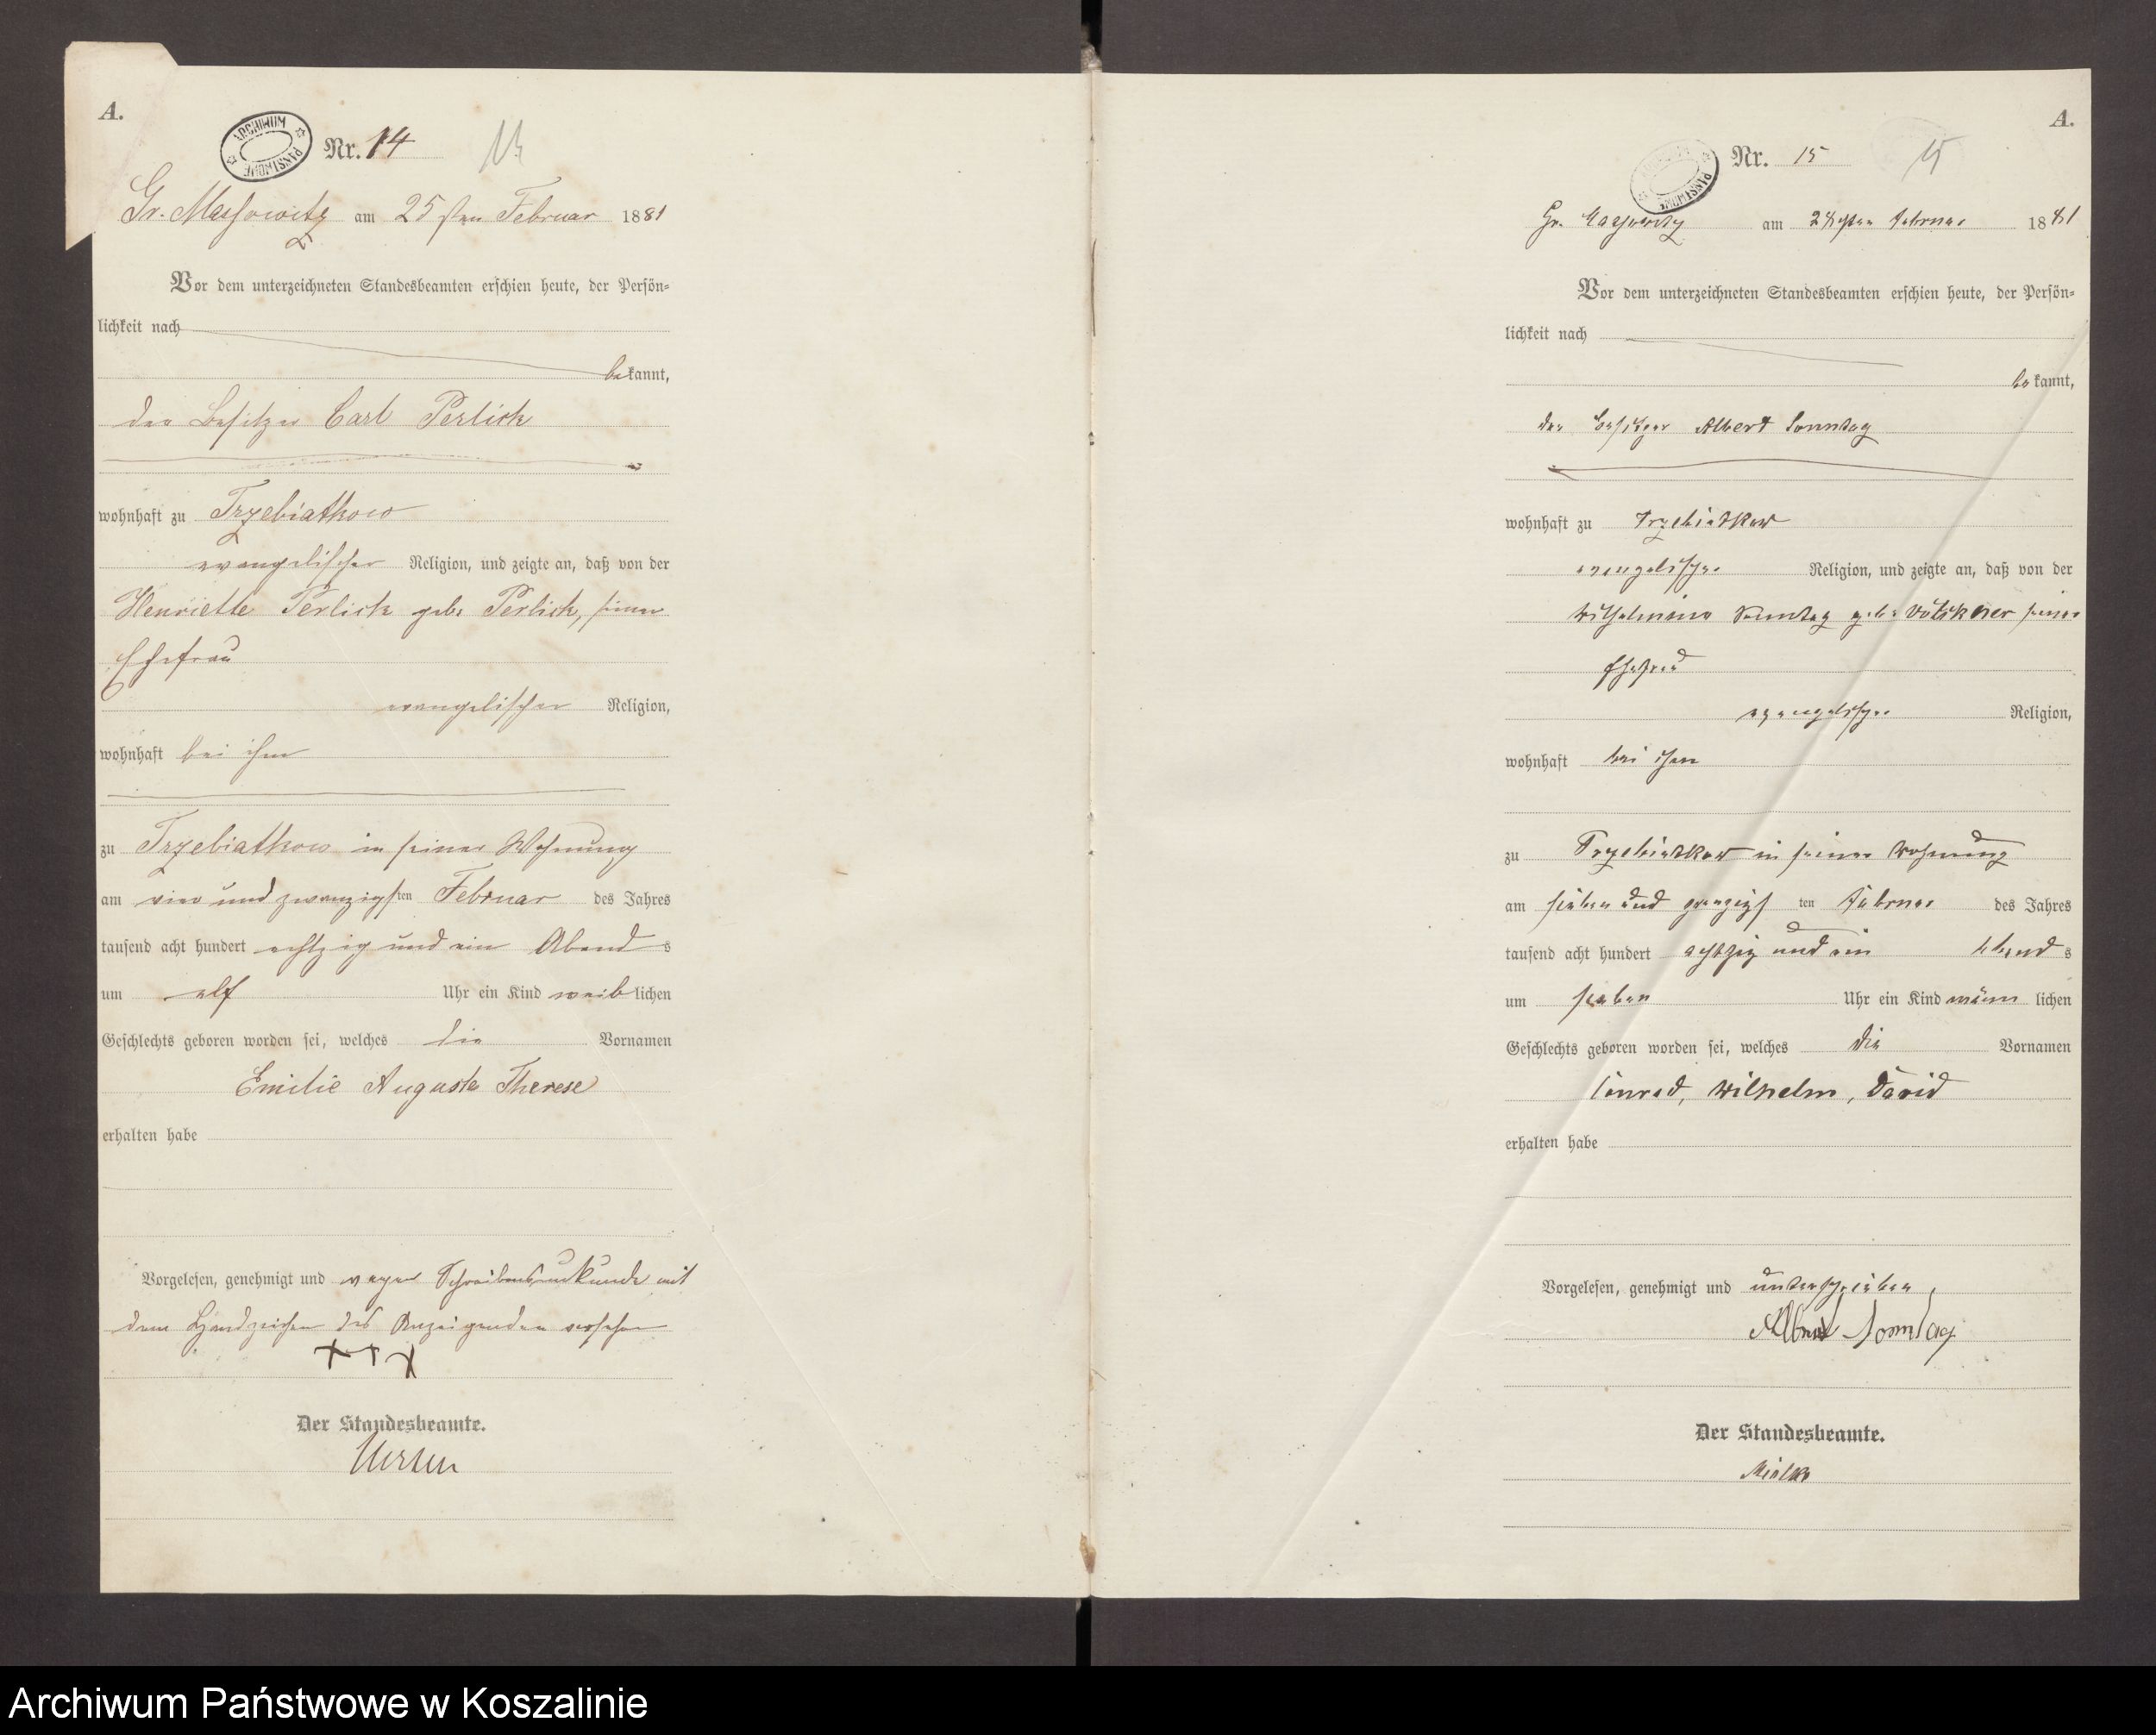 A.
ARCHIWUM PAŃSTWOWE
Nr. 14
14
Gr. Massowitz am 25sten Februar 1881
Vor dem unterzeichneten Standesbeamten erschien heute, der Persön-
lichkeit nach
bekannt,
der Besitzer Carl Perlick
wohnhaft zu Trzebiatkow
evangelischer Religion, und zeigte an, daß von der
Henriette Perlick geb. Perlick, seiner
Ehefrau
evangelischer Religion,
wohnhaft bei ihm
zu Trzebiatkow in seiner Wohnung
am vier und zwanzigsten Februar des Jahres
tausend acht hundert achtzig und ein Abends
um elf Uhr ein Kind weiblichen
Geschlechts geboren worden sei, welches die Vornamen
Emilie Auguste Therese
erhalten habe
Vorgelesen, genehmigt und wegen Schreibensunkunde mit
dem Handzeichen des Anzeigenden versehen
+++
Der Standesbeamte.
A.
PAŃSTWOWE
Nr. 15
15
Gr. Massowitz am 28sten Februar 1881
Vor dem unterzeichneten Standesbeamten erschien heute, der Persön-
lichkeit nach
bekannt,
der Besitzer Albert Sonntag
wohnhaft zu Trzebiatkow
evangelischer Religion, und zeigte an, daß von der
Wilhelmine Sonntag geb. Völskner seiner
Ehefrau
evangelischer Religion,
wohnhaft bei ihm
zu Trzebiatkow in seiner Wohnung
am sieben und zwanzigsten Februar des Jahres
tausend acht hundert achtzig und ein Abends
um sieben Uhr ein Kind männlichen
Geschlechts geboren worden sei, welches die Vornamen
Conrad, Wilhelm, David
erhalten habe
Vorgelesen, genehmigt und unterschrieben
Albert Sonntag
Der Standesbeamte.
Mielke
Archiwum Państwowe w Koszalinie